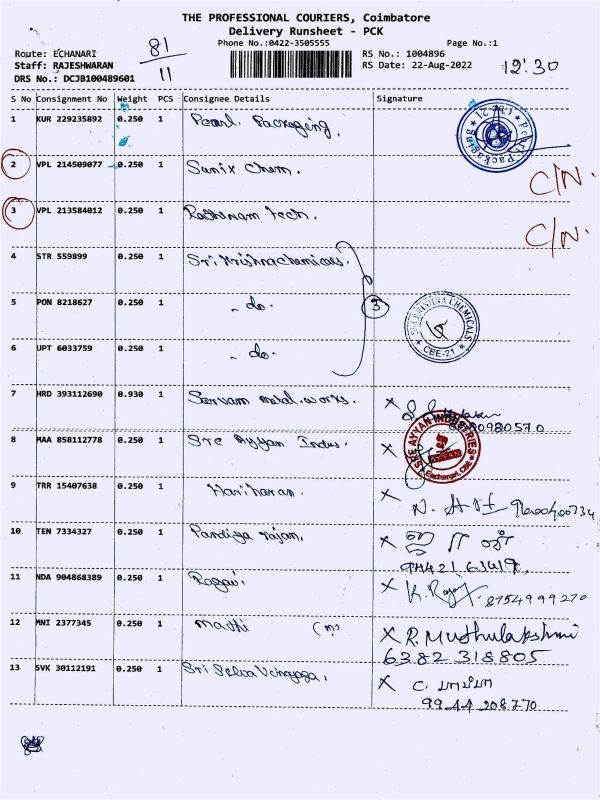 THE PROFESSIONAL COURIERS, Coimbatore
Delivery Runsheet - PCK
Phone No.:0422-3505555 Page No.:1
Route: ECHANARI 81/11 RS No.: 1004896
Staff: RAJESHWARAN RS Date: 22-Aug-2022 12:30
DRS No.: DCJB100489601
S No Consignment No Weight PCS Consignee Details Signature
1 KUR 229235892 0.250 1 Pearl Packaging.
2 VPL 214509077 0.250 1 Sunix Chem. C/N.
3 VPL 213584012 0.250 1 Rathinam tech. C/N.
4 STR 559899 0.250 1 Sri Krishna chemicals.
5 PON 8218627 0.250 1 - do. 3 CHEMICALS CBE-21
6 UPT 6033759 0.250 1 - do.
7 HRD 393112690 0.930 1 Sarvam metal works. X
8 MAA 858112778 0.250 1 Sre Ayyan Indus. X SRE AYYAN INDUSTRIES Eachanari, CBE
9 TRR 15407638 0.250 1 Hariharan. X
10 TEN 7334327 0.250 1 Pandiya rajan. X
11 NDA 904868389 0.250 1 X 8754999270
12 MNI 2377345 0.250 1 Mathi X R. Muthulakshmi
6382 318805
13 SVK 30112191 0.250 1 Sri Selva Vinayaga. X
9944 208770